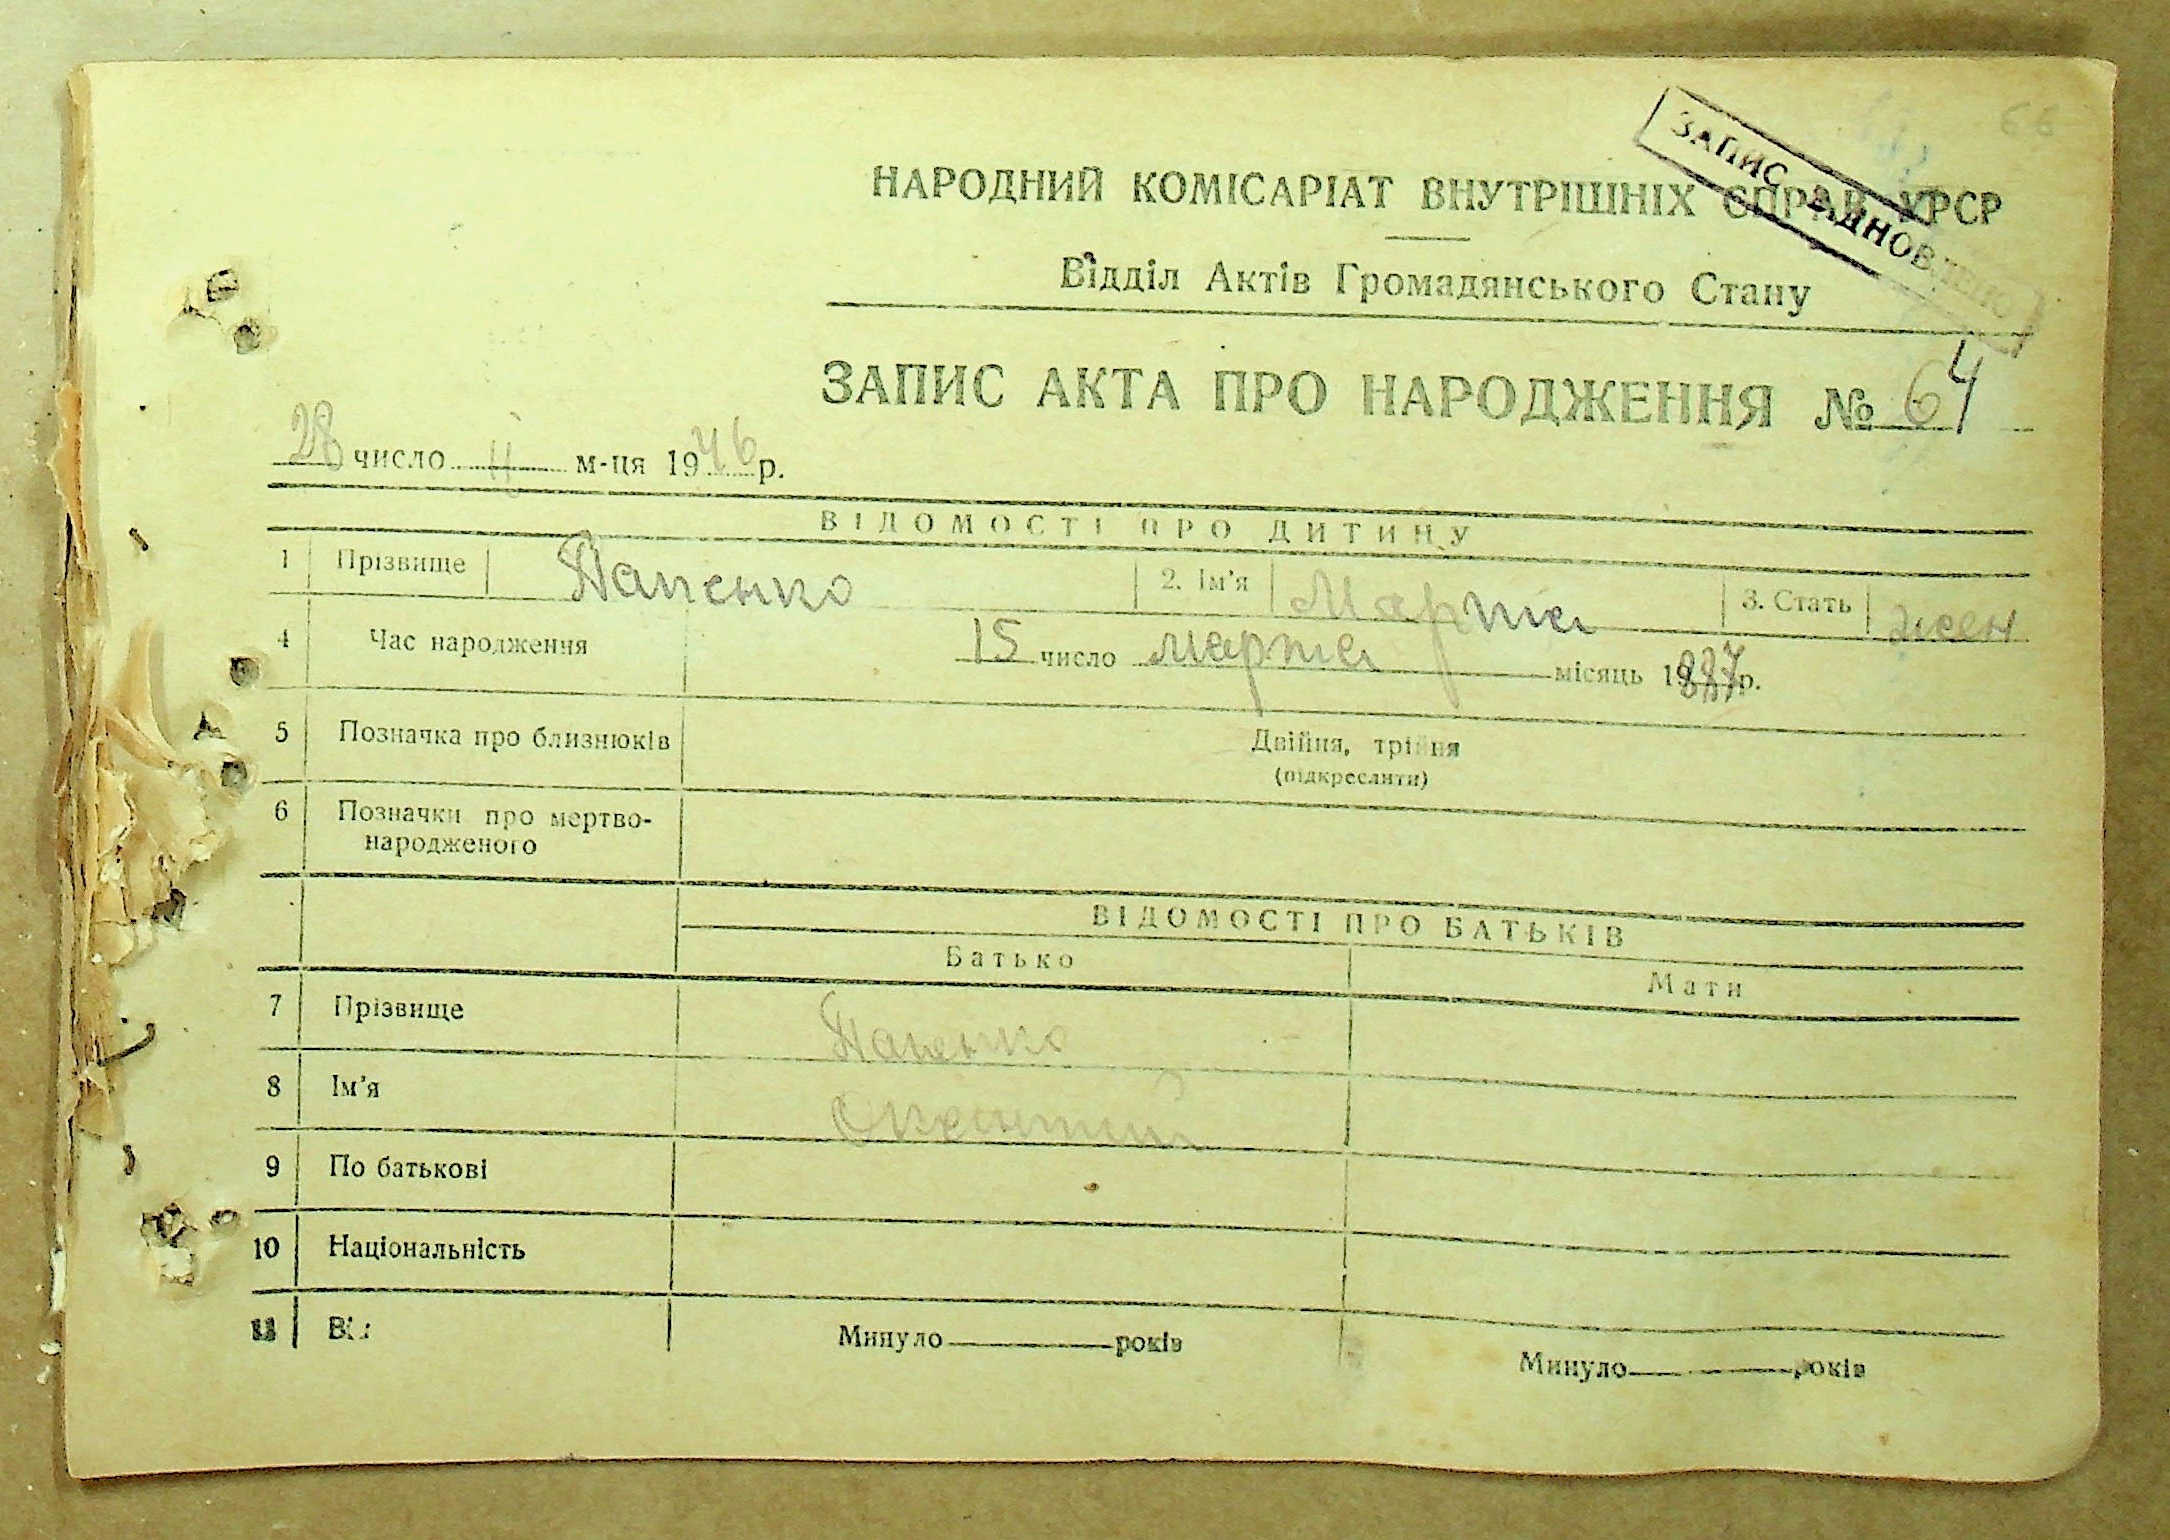 66
ЗАПИС ВІДНОВЛЕНО
НАРОДНИЙ КОМІСАРІАТ ВНУТРІШНІХ СПРАВ УРСР
Відділ Актів Громадянського Стану
ЗАПИС АКТА ПРО НАРОДЖЕННЯ № 64
28 число II м-ця 1946 р.
ВІДОМОСТІ ПРО ДИТИНУ
1 Прізвище Папенко 2. Ім'я Марта 3. Стать жен
4 Час народження 15 число марта місяць 1887 р.
5 Позначка про близнюків Двійня, трійня
(підкреслити)
6 Позначки про мертво-
народженого
ВІДОМОСТІ ПРО БАТЬКІВ
Батько Мати
7 Прізвище Папенко
8 Ім'я
9 По батькові
10 Національність
11 Вік Минуло років Минуло років